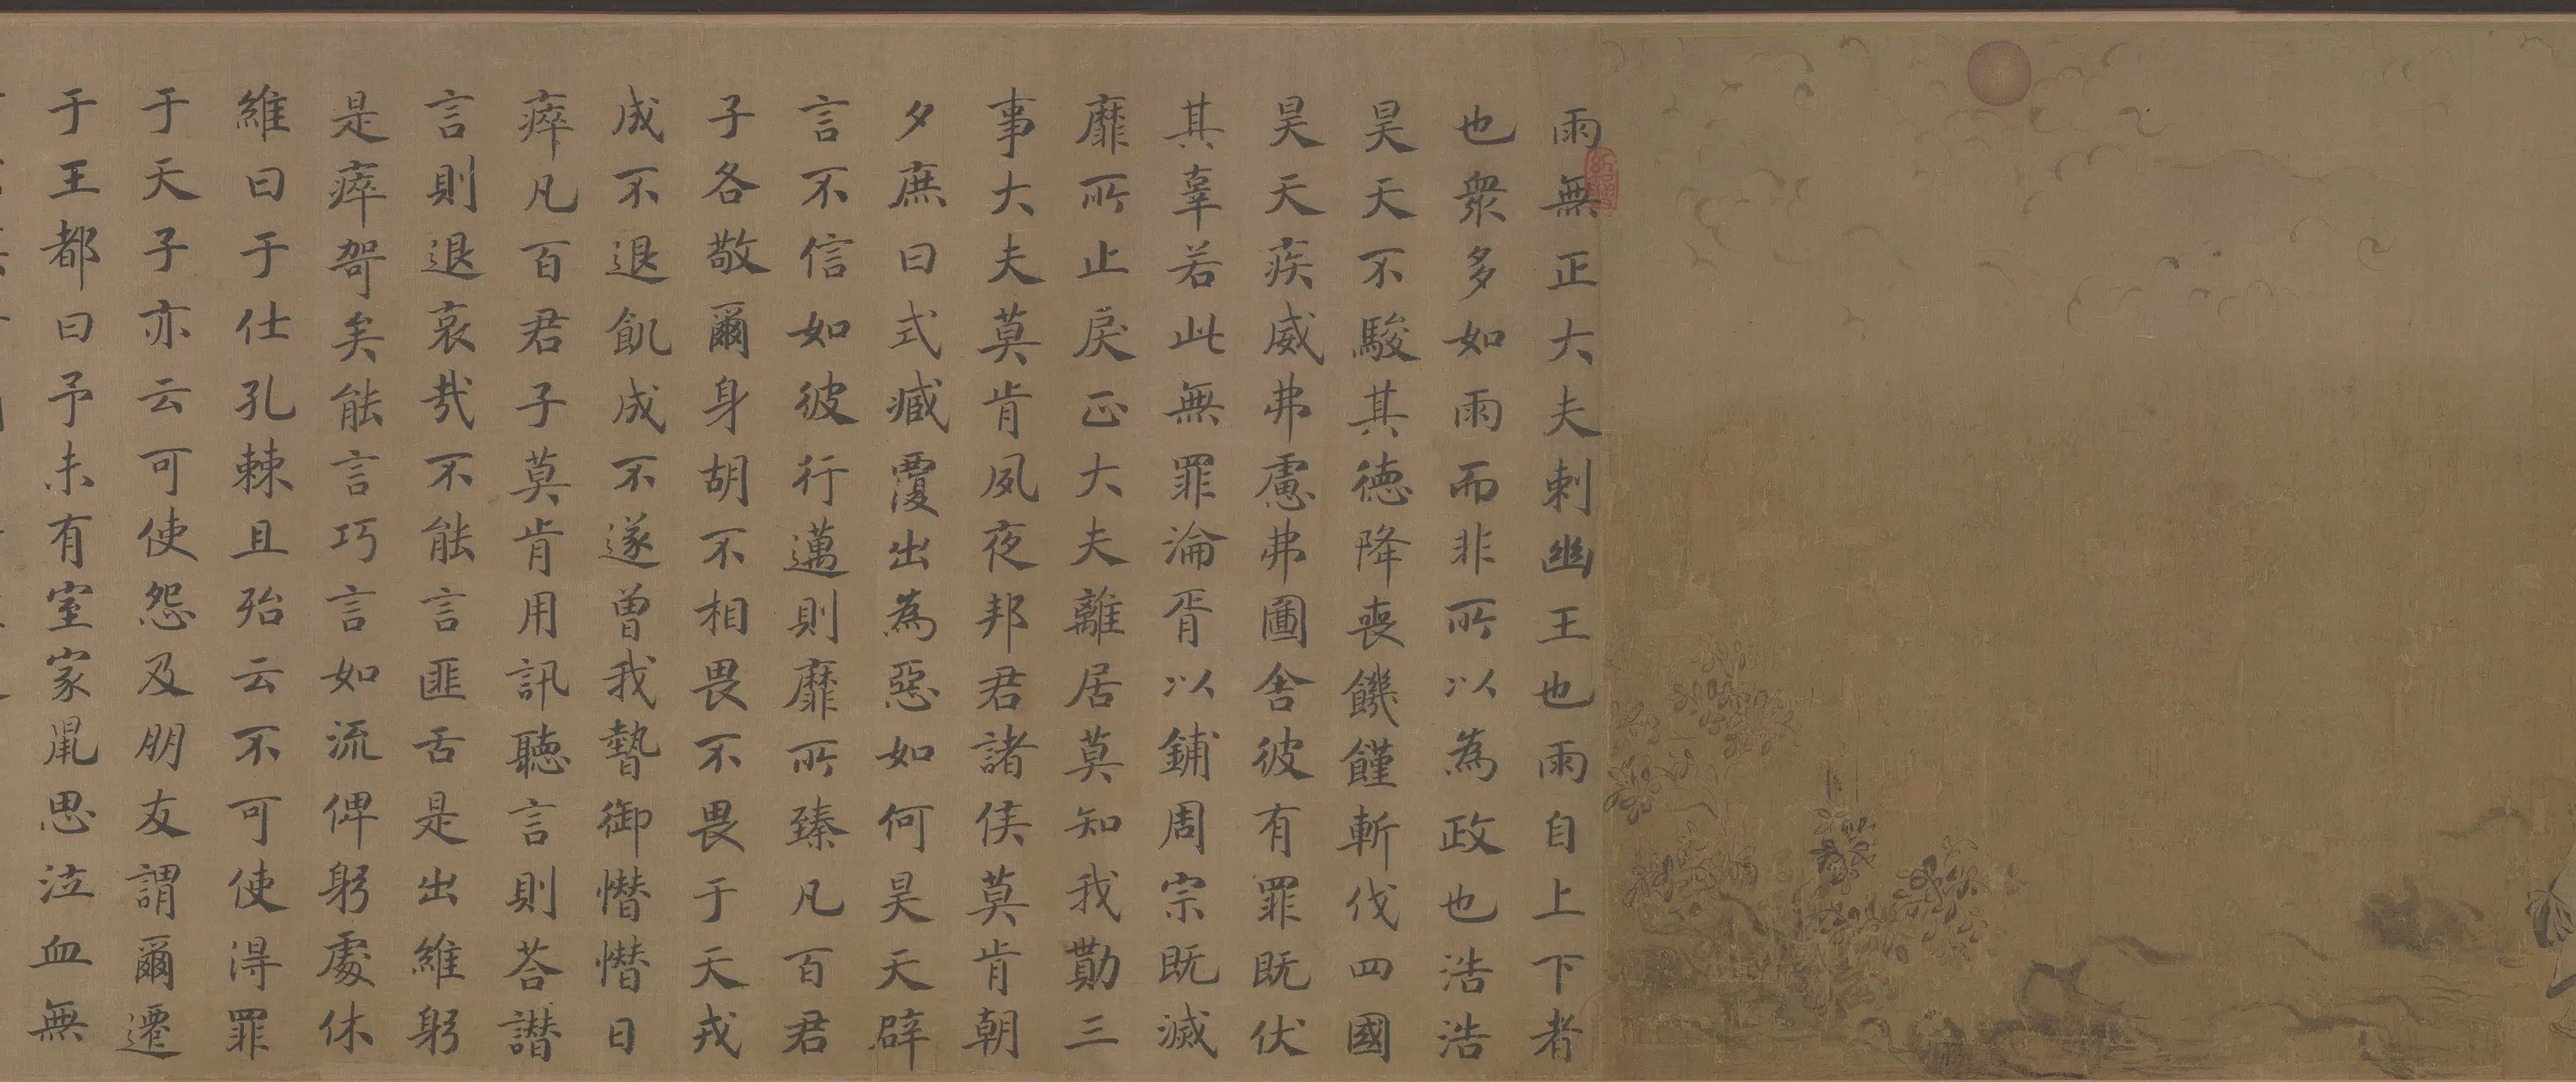 雨無正大夫刺幽王也雨自上下者
也衆多如雨而非所以為政也浩浩
昊天不駿其德降喪饑饉斬伐四國
昊天疾威弗慮弗圖舍彼有罪既伏
其辜若此無罪淪胥以鋪周宗既滅
靡所止戾正大夫離居莫知我勩三
事大夫莫肯夙夜邦君諸侯莫肯朝
夕庶曰式臧覆出為惡如何昊天辟
言不信如彼行邁則靡所臻凡百君
子各敬爾身胡不相畏不畏于天戎
成不退飢成不遂曾我暬御憯憯日
瘁凡百君子莫肯用訊聽言則荅譖
言則退哀哉不能言匪舌是出維躬
是瘁哿矣能言巧言如流俾躬處休
維曰于仕孔棘且殆云不可使得罪
于天子亦云可使怨及朋友謂爾遷
于王都曰予未有室家鼠思泣血無